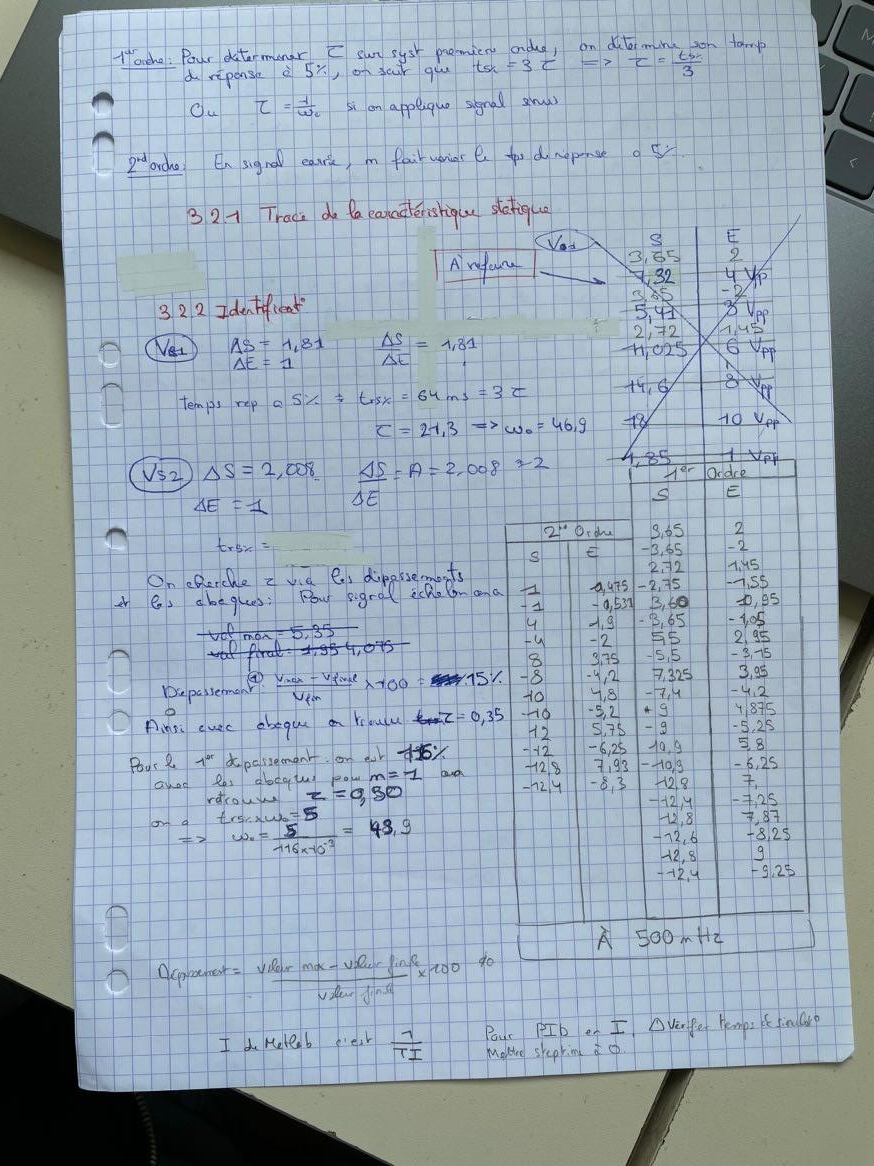 1er ordre: Pour déterminer τ sur syst premier ordre, on détermine son temp
de réponse à 5%, on sait que tr5% = 3 τ => τ = tr5%/3
Ou τ = 1/ω0 si on applique signal sinus
2nd ordre: En signal carrée, on fait varier le tps de reponse a 5%.
3 2 1 Tracé de la caractéristique statique
À refaire
Vs1
S E
3,65 2
7,32 4 Vpp
3,65 -2
5,41 3 Vpp
2,72 1,45
11,025 6 Vpp
14,6 8 Vpp
18 10 Vpp
1,85 1 Vpp
3 2 2 Identificat°
Vs1 ΔS = 1,81 ΔS/ΔE = 1,81
ΔE = 1
Temps rep a 5% = tr5% = 64 ms = 3 τ
τ = 21,3 => ω0 = 46,9
Vs2 ΔS = 2,008 ΔS/ΔE = A = 2,008 ≈ 2
ΔE = 1
tr5% =
On cherche z via les dépassements
et les abaques: Pour signal échelon on a
val max = 5,35
val final = 4,075
Dépassement: Vmax - Vfinale / Vfin × 100 = 15%
Ainsi avec abaque on trouve z = 0,35
Pour le 1er dépassement on est 15%
avec les abaques pour m = 1 on a
retrouve z = 0,50
on a tr5% × ω0 = 5
=> ω0 = 5/116×10^-3 = 43,9
2nd Ordre
S E
1 0,475
-1 -0,531
4 1,9
-4 -2
8 3,75
-8 -4,2
10 4,8
-10 -5,2
12 5,75
-12 -6,25
12,8 7,93
-12,4 -8,3
1er Ordre
S E
3,65 2
-3,65 -2
2,72 1,45
-2,75 -1,55
3,60 0,95
-3,65 -1,05
5,5 2,95
-5,5 -3,15
7,325 3,95
-7,4 -4,2
9 4,875
-9 -5,25
10,9 5,8
-10,9 -6,25
12,8 7,
-12,4 -7,25
12,8 7,87
-12,6 -8,25
12,8 9
-12,4 -9,25
À 500 mHz
Dépassement = valeur max - valeur finale / valeur finale × 100 %
I de Matlab c'est 1/TI
Pour PID en I, ⚠ Vérifier temps de simulat°
Mettre steptime à 0